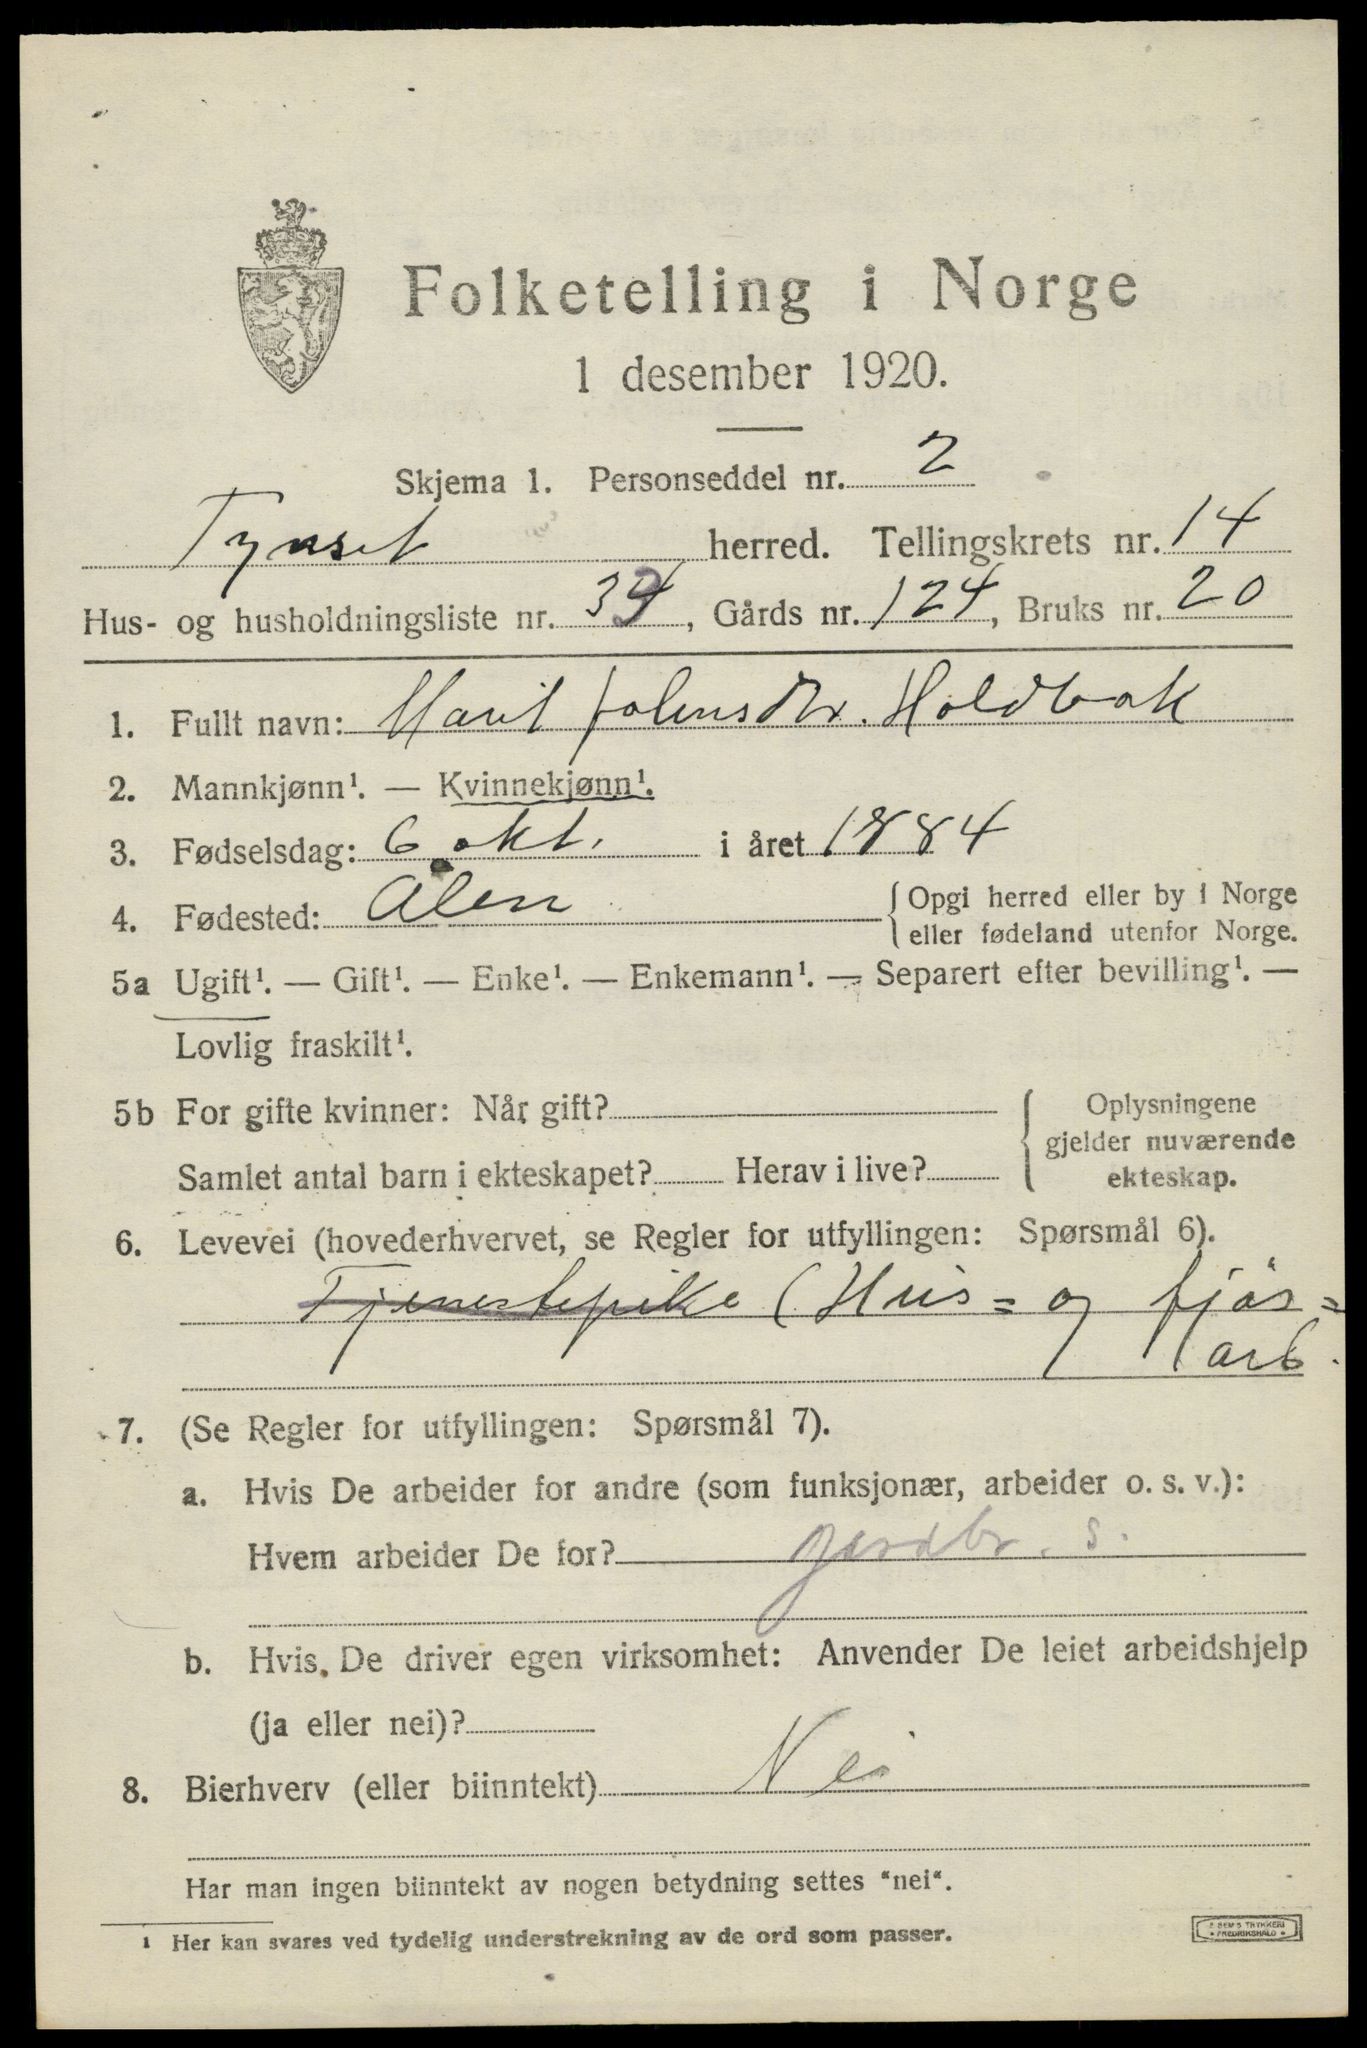 Folketelling i Norge
1 desember 1920.
Skjema 1. Personseddel nr. 2
Tynset herred. Tellingskrets nr. 14
Hus- og husholdningsliste nr. , Gårds nr. 124, Bruks nr. 20
1. Fullt navn: Marit Johnsdtr. Holdbak
2. Mannkjønn¹. — Kvinnekjønn¹.
3. Fødselsdag: 6 okt. i året 1884
4. Fødested: Ålen {Opgi herred eller by i Norge
eller fødeland utenfor Norge.
5a Ugift¹. — Gift¹. — Enke¹. — Enkemann¹. — Separert efter bevilling¹. —
Lovlig fraskilt¹.
5b For gifte kvinner: Når gift? { Oplysningene
gjelder nuværende
Samlet antal barn i ekteskapet? Herav i live? ekteskap.
6. Levevei (hovederhvervet, se Regler for utfyllingen: Spørsmål 6).
Tjenestepike (Hus= og fjös=
arb.
7. (Se Regler for utfyllingen: Spørsmål 7).
a. Hvis De arbeider for andre (som funksjonær, arbeider o. s. v.):
Hvem arbeider De for? gardbr. s.
b. Hvis De driver egen virksomhet: Anvender De leiet arbeidshjelp
(ja eller nei)?
8. Bierhverv (eller biinntekt) Nei
Har man ingen biinntekt av nogen betydning settes "nei".
1 Her kan svares ved tydelig understrekning av de ord som passer.
SEM'S TRYKKERI
• FREDRIKSHALD •